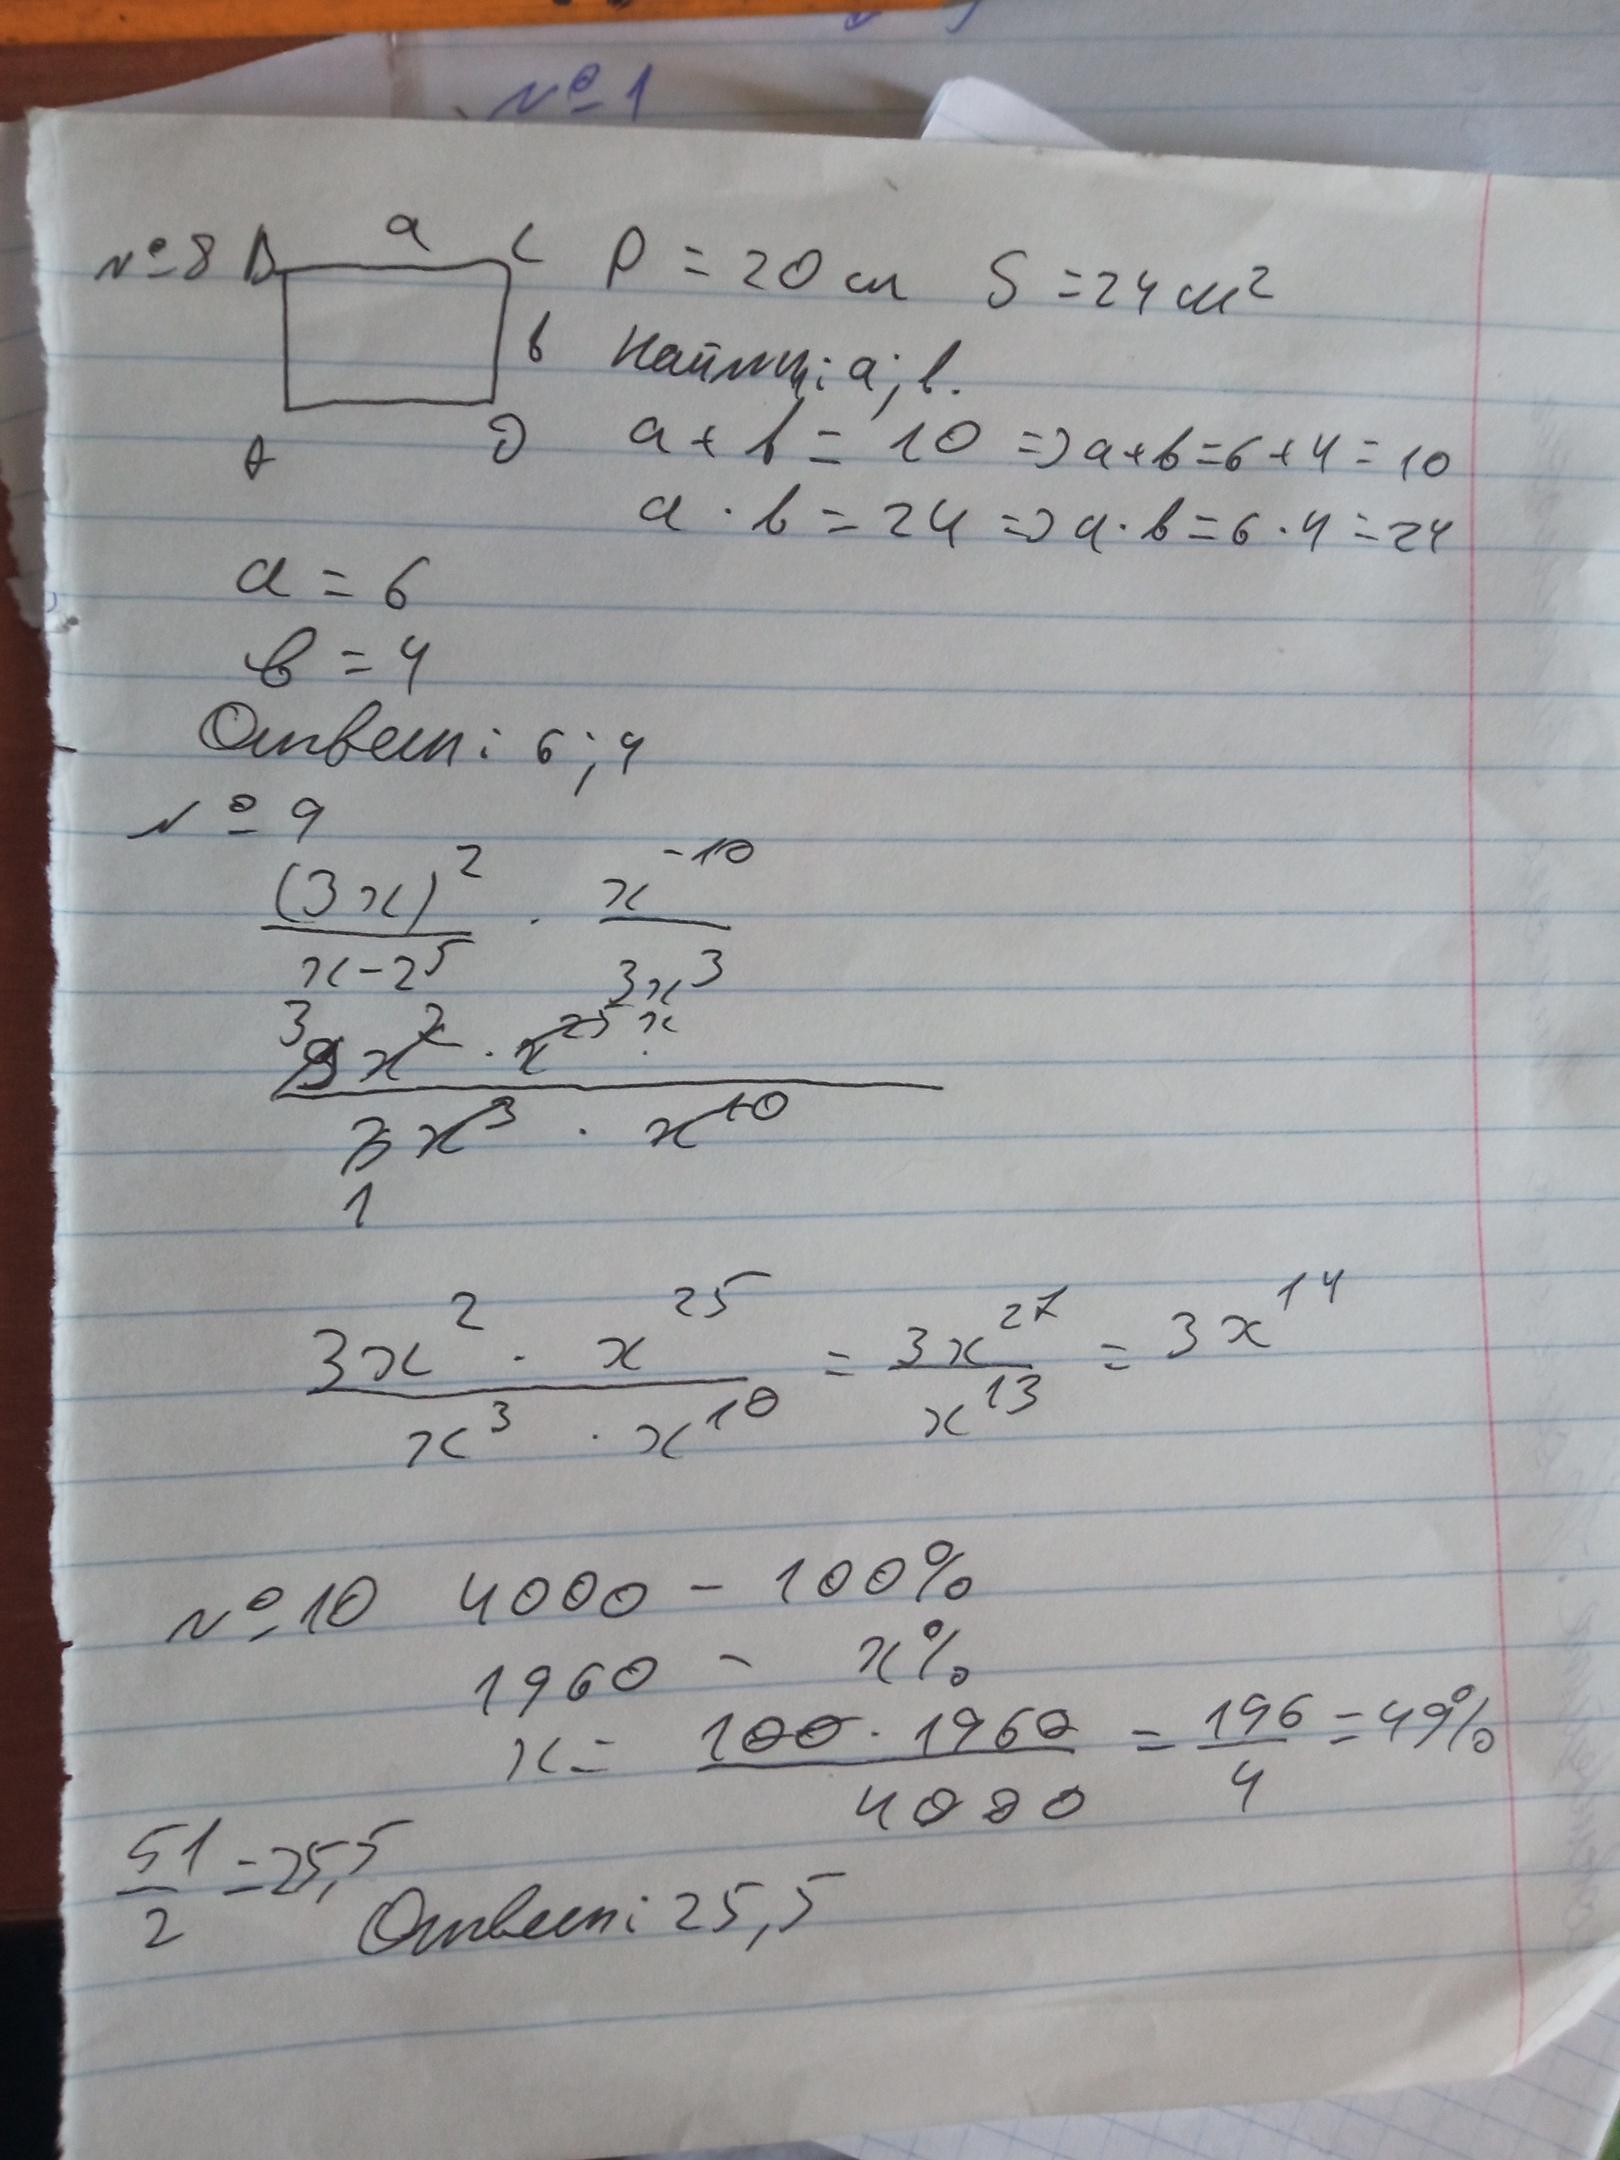 №1
№8 B a C P = 20 см S = 24 см²
в Найти: a; в.
A D a + в = 10 => a+в=6+4=10
a · в = 24 => a·в=6·4=24
a = 6
в = 4
Ответ: 6; 4
№ 9
(3x)² / x-25 · x^-10 / 3x³
3
9x² · x^25
3x³ · x^10
1
3x² · x^25 / x³ · x^10 = 3x^27 / x^13 = 3x^14
№10 4000 – 100%
1960 – x%
x = 100 · 1960 / 4000 = 196 / 4 = 49%
51 / 2 = 25,5
Ответ: 25,5